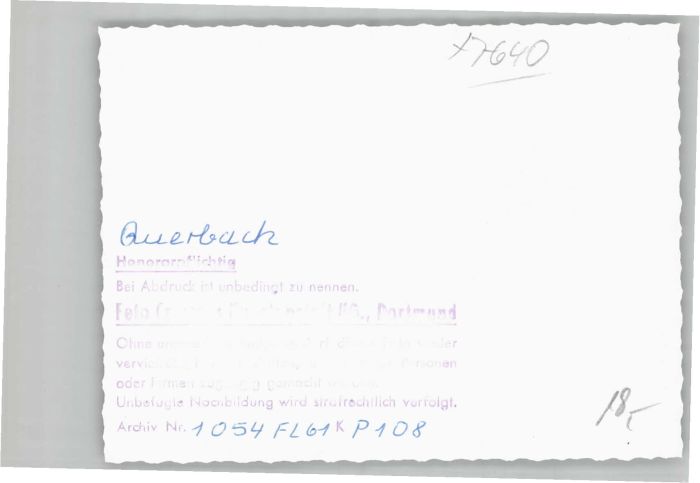 +7640
Auerbach
Honorarpflichtig
Bei Abdruck ist unbedingt zu nennen.
Foto KG., Dortmund
Ohne darf dieses Foto weder
Personen
oder Firmen zugängig gemacht werden.
Unbefugte Nachbildung wird strafrechtlich verfolgt.
Archiv Nr. 1054 FL61 K P108
18,-